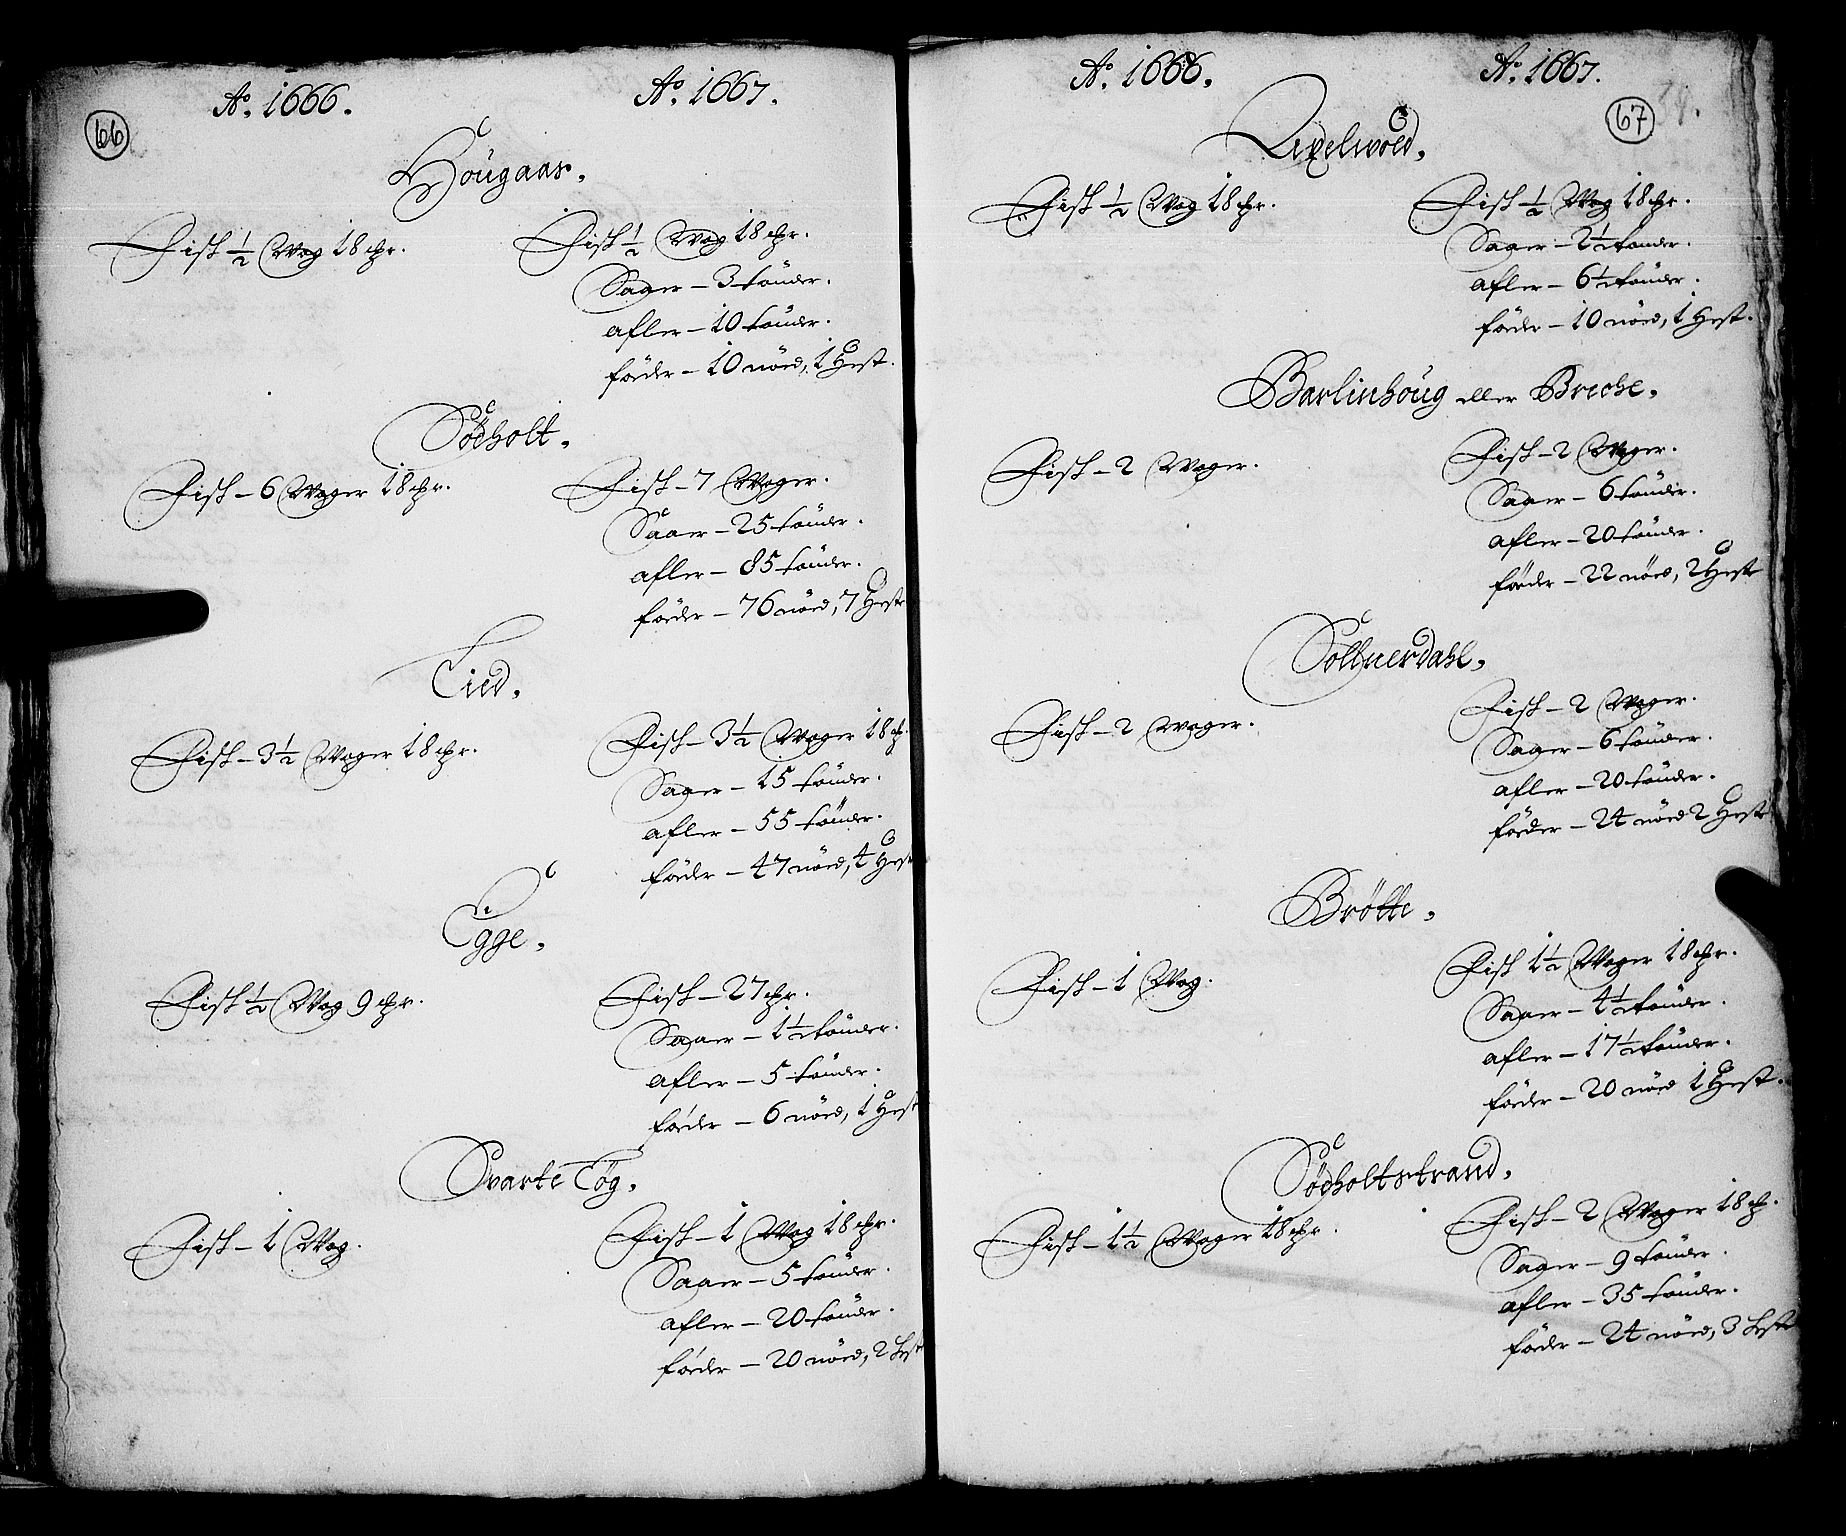 66
Ao. 1666. Ao. 1667.
Hougaas.
Fisk ½ Wog 18 mr. Fisk ½ Wog 18 mr.
Saaer – 3 tönder.
afler – 10 tönder.
föeder – 10 nöed, 1 Hest.
Södholt.
Fisk – 6 Woger 18 mr. Fisk – 7 Woger.
Saaer – 25 tönder.
afler – 85 tönder.
föeder – 76 nöed, 7 Heste
Tied.
Fisk – 3½ Woger 18 mr. Fisk – 3½ Woger 18 m.
Saaer – 15 tönder.
afler – 55 tönder.
föeder – 47 nöed, 4 Hest
Egge.
Fisk ½ Wog 9 mr. Fisk – 27 mr.
Saaer – 1½ tönder.
afler – 5 tönder.
föeder – 6 nöed, 1 Hest
Svarte Tög.
Fisk – 1 Wog. Fisk – 1 Wog 18 mr.
Saaer – 5 tönder.
afler – 20 tönder.
föeder – 20 nöed, 2 Hest
67
Ao. 1666. Ao. 1667.
Fisk ½ Wog 18 mr. Fisk ½ Wog 18 mr.
Saaer – 2½ tönder.
afler – 6½ tönder.
föder – 10 nöed, 1 Hest.
Barlinhoug eller Breche.
Fisk – 2 Woger. Fisk – 2 Woger.
Saaer – 6 tönder.
afler – 20 tönder.
föeder – 22 nöed, 2 Heste
Sollnerdahl.
Fisk – 2 woger. Fisk – 2 Woger.
Saaer – 6 tönder.
afler – 20 tönder.
föeder – 24 nöed 2 Heste
Brötte.
Fisk – 1 Wog. Fisk 1½ Woger 18 mr.
Saaer – 4½ tönder.
afler – 17½ tönder.
föeder – 20 nöed 1 Hest.
Södholtstrand.
Fisk – 1½ Woger 18 mr. Fisk – 2 Woger 18 m.
Saaer – 9 tönder.
afler – 35 tönder.
föeder – 24 nöed, 3 Heste